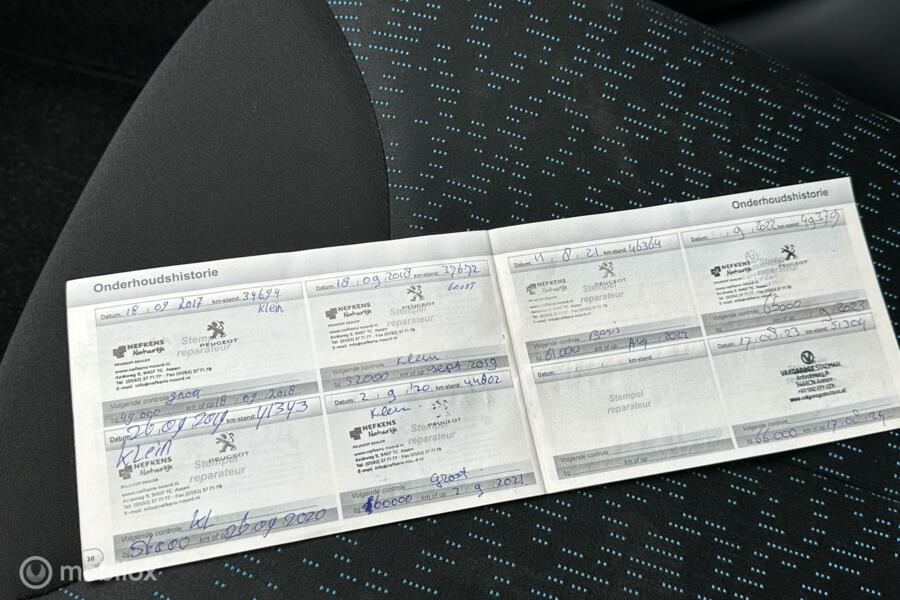 Onderhoudshistorie
Datum: 18.09 2017 km-stand: 34694
Klein
NEFKENS
Natuurlijk
PEUGEOT
Stempel
reparateur
PEUGEOT DEALER
www.nefkens-noord.nl
Aziëweg 9, 9407 TC Assen
E-mail: info@nefkens-noord.nl
Volgende controle groot
bij 49.000 km of op 18.09.2018
Datum: 18.09.2018 km-stand: 37672
Groot
NEFKENS
Natuurlijk
PEUGEOT
Stempel
reparateur
PEUGEOT DEALER
Volgende controle Klein
bij 52000 km of op sept 2019
Datum: 26.09 2019 km-stand: 41343
Klein
NEFKENS
Natuurlijk
PEUGEOT
Stempel
reparateur
Volgende controle Kl
bij 56000 km of op 26 09 2020
Datum: 2.9.'20 km-stand: 44802
Klein
NEFKENS
Natuurlijk
PEUGEOT
PEUGEOT DEALER
Volgende controle Groot
bij 60000 km of op 2.9.2021
30
Onderhoudshistorie
Datum: 11.8.21 km-stand: 46364
NEFKENS
Natuurlijk
PEUGEOT
Stempel
reparateur
Volgende controle Basis
bij 61.000 km of op Aug. 2022
Datum: 9.2022 km-stand: 49379
NEFKENS
Natuurlijk
PEUGEOT
Stempel
reparateur
Volgende controle
km of op
Datum: km-stand:
Stempel
reparateur
Volgende controle
bij km of op
17.08.23 51304
VAKGARAGE STADMAN
Volgende controle
bij 66.000 km of op 17.08.24
mobilox